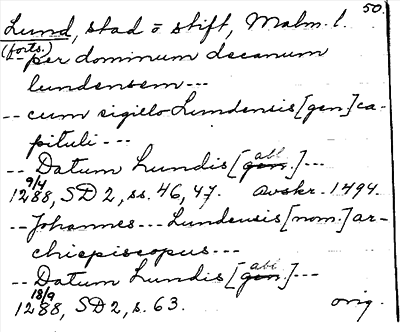 50.
Lund, stad o stift, Malm. l.
(forts.)
-- per dominum decanum
lundensem ---
-- cum sigillo Lundensis [gen] ca-
pituli ---
-- Datum Lundis [gen. abl.] ---
9/4
1288, SD 2, ss. 46, 47. avskr. 1494.
-- Johannes --- Lundensis [nom.] ar-
chiepiscopus ---
-- Datum Lundis [gen. abl.] ---
18/9
1288, SD 2, s. 63. orig.